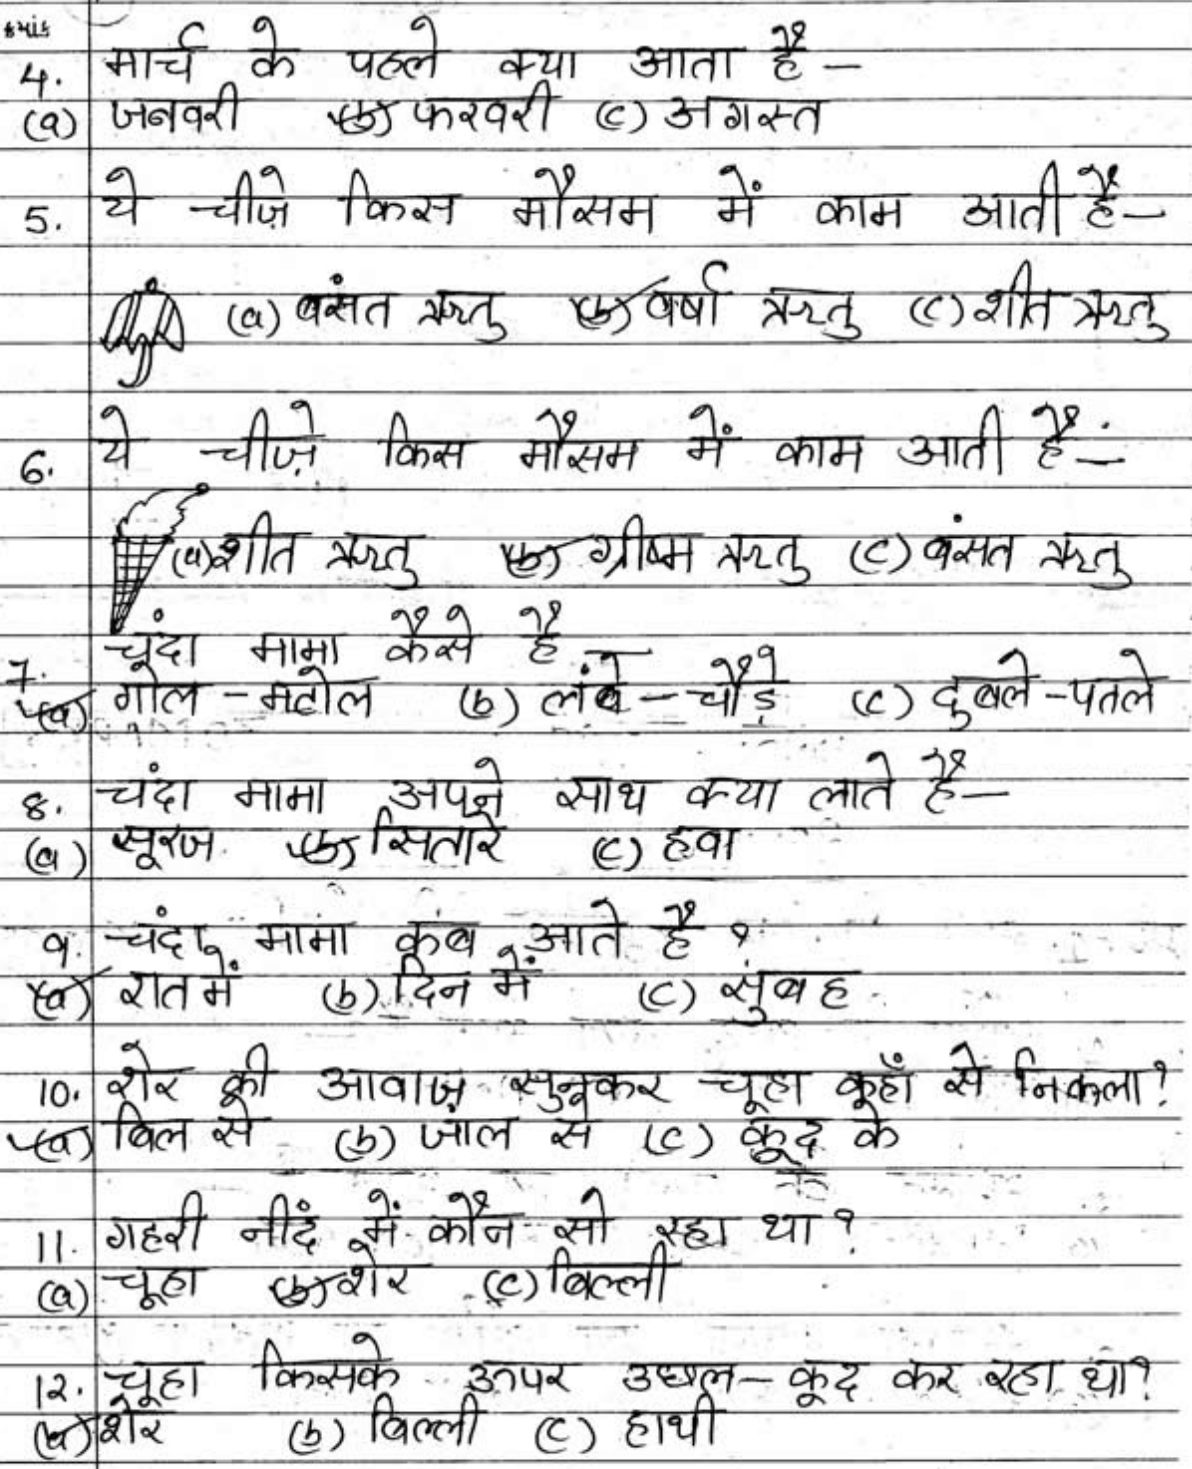 ક્રમાંક
4. मार्च के पहले क्या आता है –
(a) जनवरी (b) फरवरी (c) अगस्त
5. ये चीज़े किस मौसम में काम आती है –
(a) बसंत ऋतु (b) वर्षा ऋतु (c) शीत ऋतु
6. ये चीज़े किस मौसम में काम आती है –
(a) शीत ऋतु (b) ग्रीष्म ऋतु (c) बंसत ऋतु
7. चंदा मामा कैसे है –
(a) गोल – मटोल (b) लंबे – चौड़े (c) दुबले – पतले
8. चंदा मामा अपने साथ क्या लाते है –
(a) सूरज (b) सितारे (c) हवा
9. चंदा मामा कब आते है ?
(a) रात में (b) दिन में (c) सुबह
10. शेर की आवाज़ सुनकर चूहा कहाँ से निकला?
(a) बिल से (b) जाल से (c) कूद के
11. गहरी नींद में कौन सो रहा था ?
(a) चूहा (b) शेर (c) बिल्ली
12. चूहा किसके ऊपर उछल – कूद कर रहा था?
(a) शेर (b) बिल्ली (c) हाथी